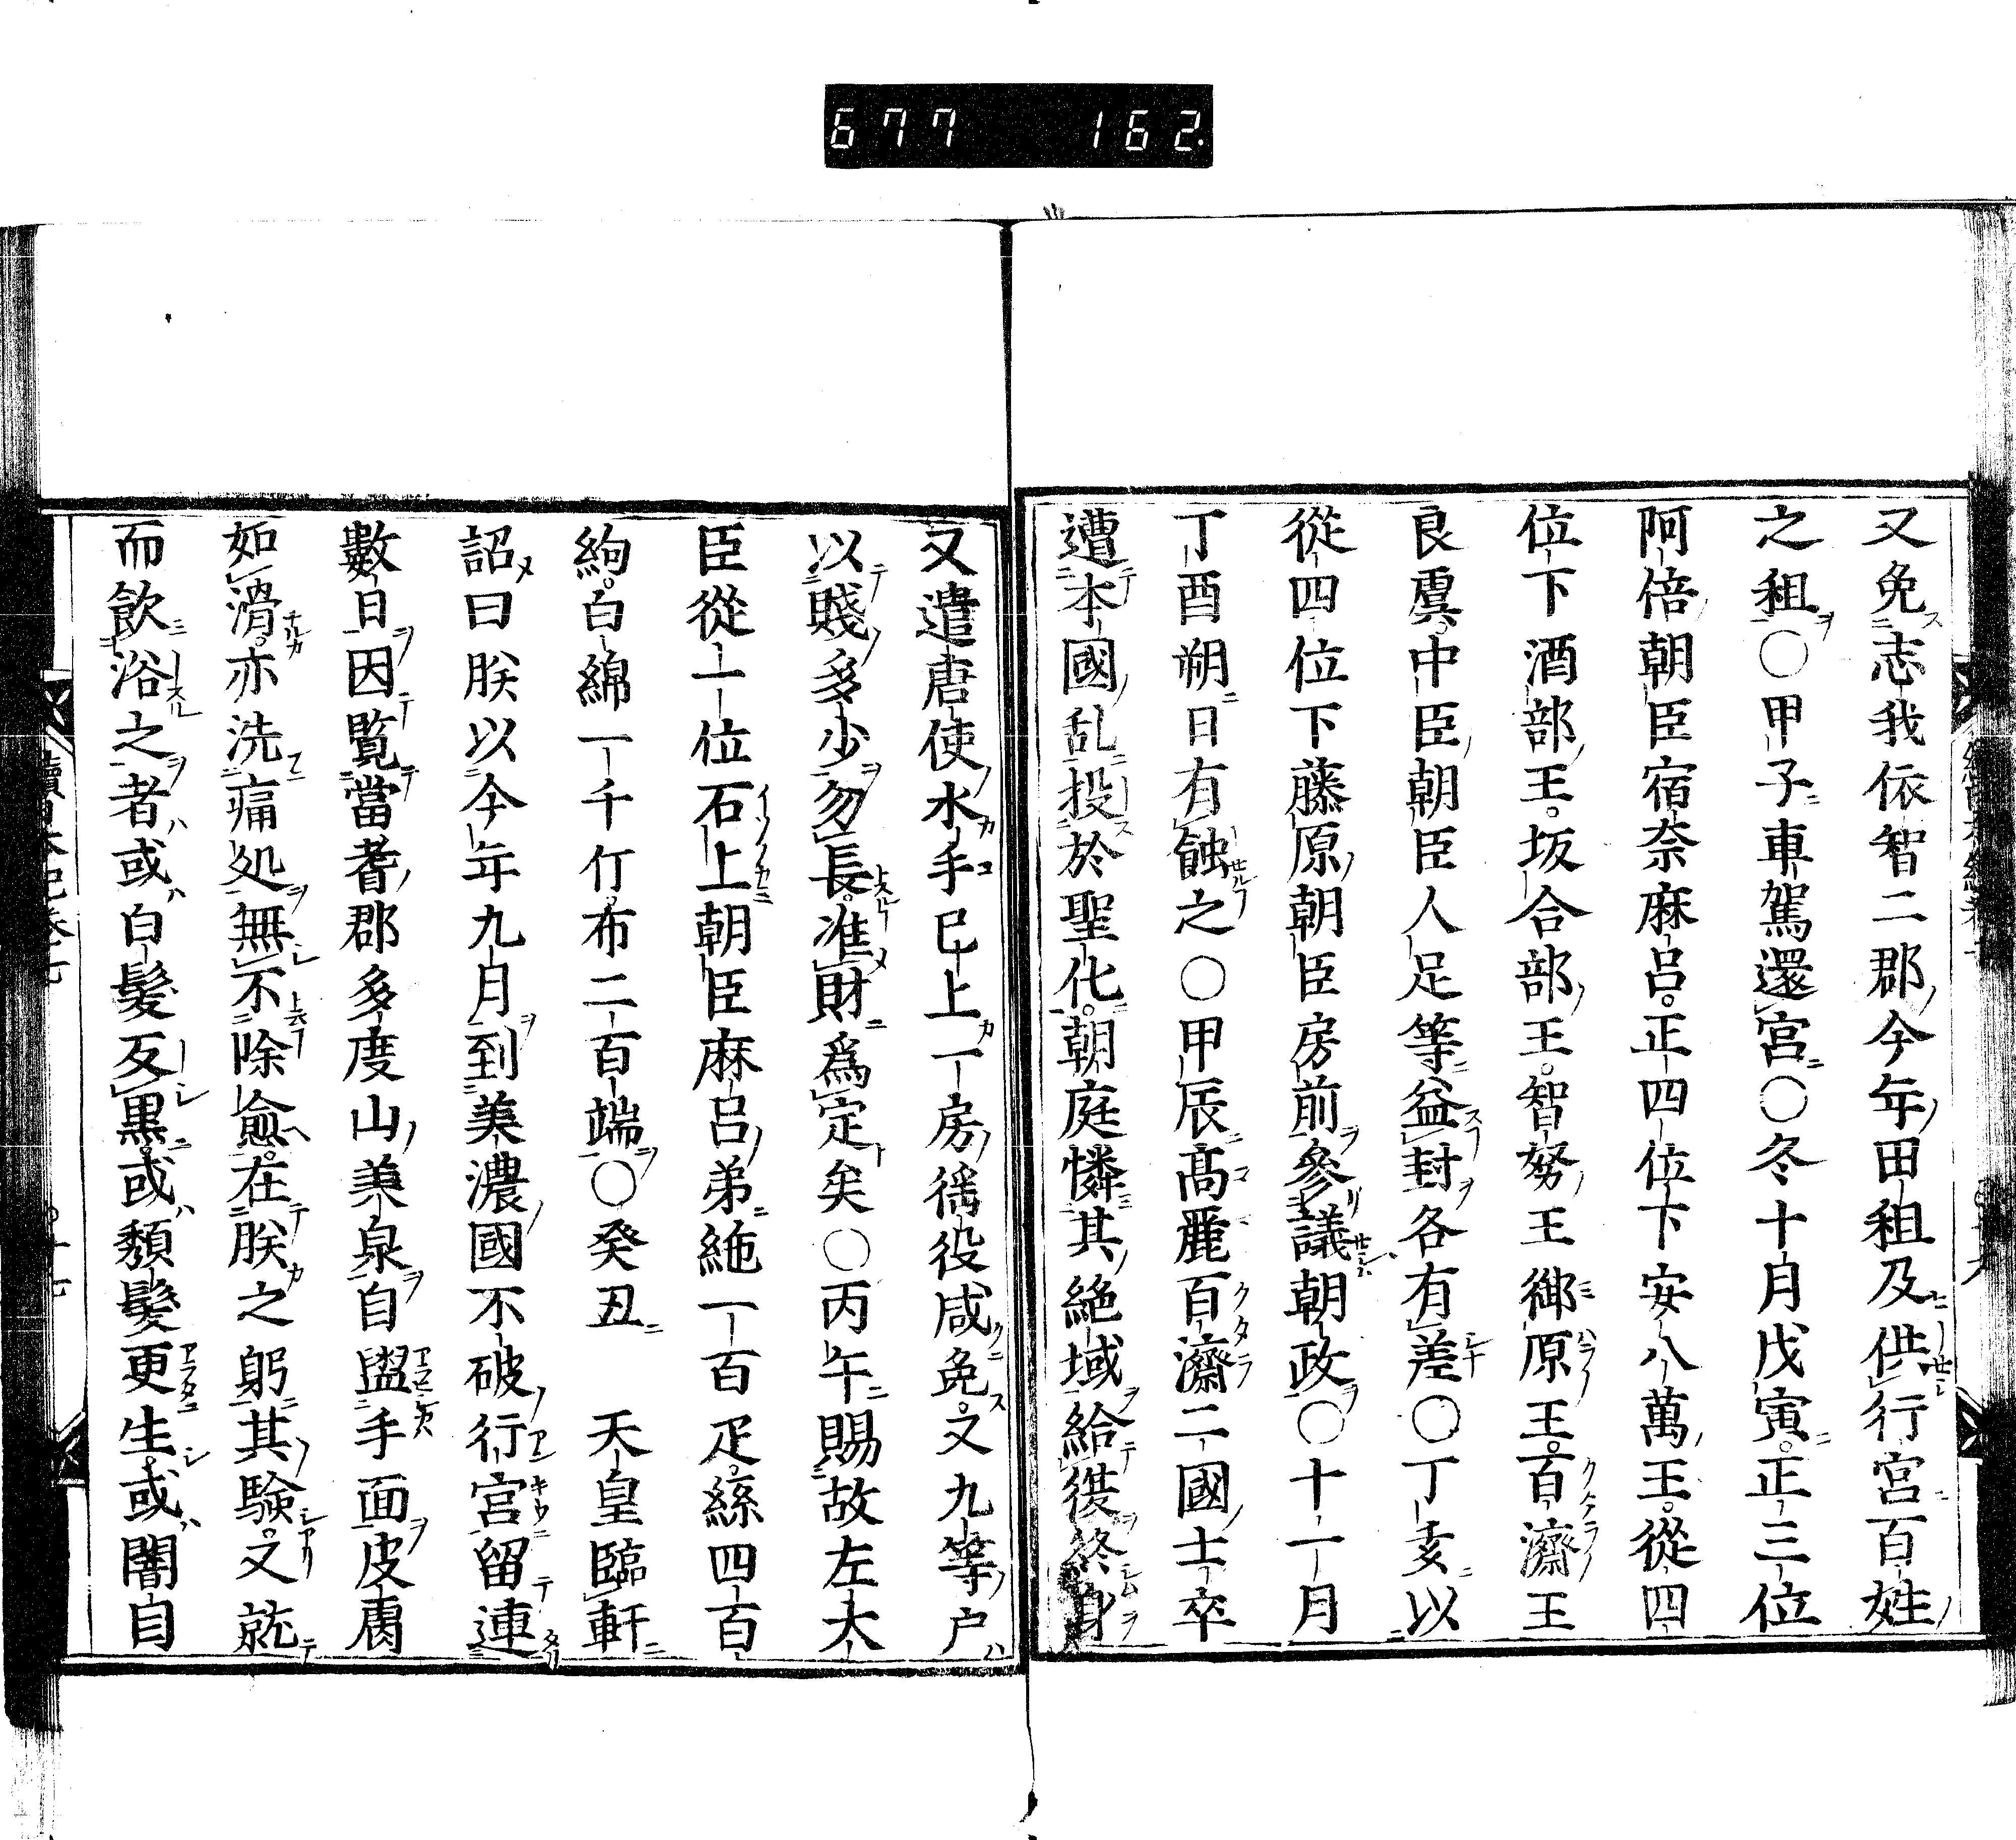 677 162.
又免志我依智二郡今年田租及供行宮百姓
之租○甲子車駕還宮○冬十月戊寅。正三位
阿倍朝臣宿奈麻呂。正四位下安八萬王。從四
位下酒部王。坂合部王。智努王御原王。百濟王
良虞。中臣朝臣人足等益封各有差○丁亥以
從四位下藤原朝臣房前參議朝政○十一月
丁酉朔日有蝕之○甲辰高麗百濟二國士卒
遭本國乱投於聖化。朝庭憐其絶域給復終身
又遣唐使水手已上一房徭役咸免。又九等户
以賤多少勿長。准財爲定矣○丙午賜故左大
臣從一位石上朝臣麻呂弟絁一百疋。絲四百
絇。白綿一千斤。布二百端○癸丑 天皇臨軒
詔曰朕以今年九月到美濃國不破行宮留連
數日因覧當耆郡多度山美泉自盥手面皮膚
如滑。亦洗痛処無不除愈。在朕之躬其驗。又就
而飲浴之者或白髮反黒。或頽髮更生。或闇自